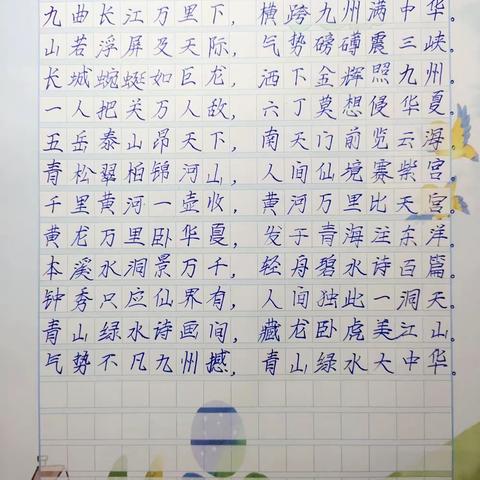 九曲长江万里下，横跨九州满中华。
山若浮屏及天际，气势磅礴震三峡。
长城蜿蜒如巨龙，洒下金辉照九州。
一人把关万人敌，六丁莫想侵华夏。
五岳泰山昂天下，南天门前览云海。
青松翠柏锦河山，人间仙境赛紫宫。
千里黄河一壶收，黄河万里比天宫。
黄龙万里卧华夏，发于青海注东洋。
本溪水洞景万千，轻舟碧水诗百篇。
钟秀只应仙界有，人间独此一洞天。
青山绿水诗画间，藏龙卧虎美江山。
气势不凡九州撼，青山绿水大中华。